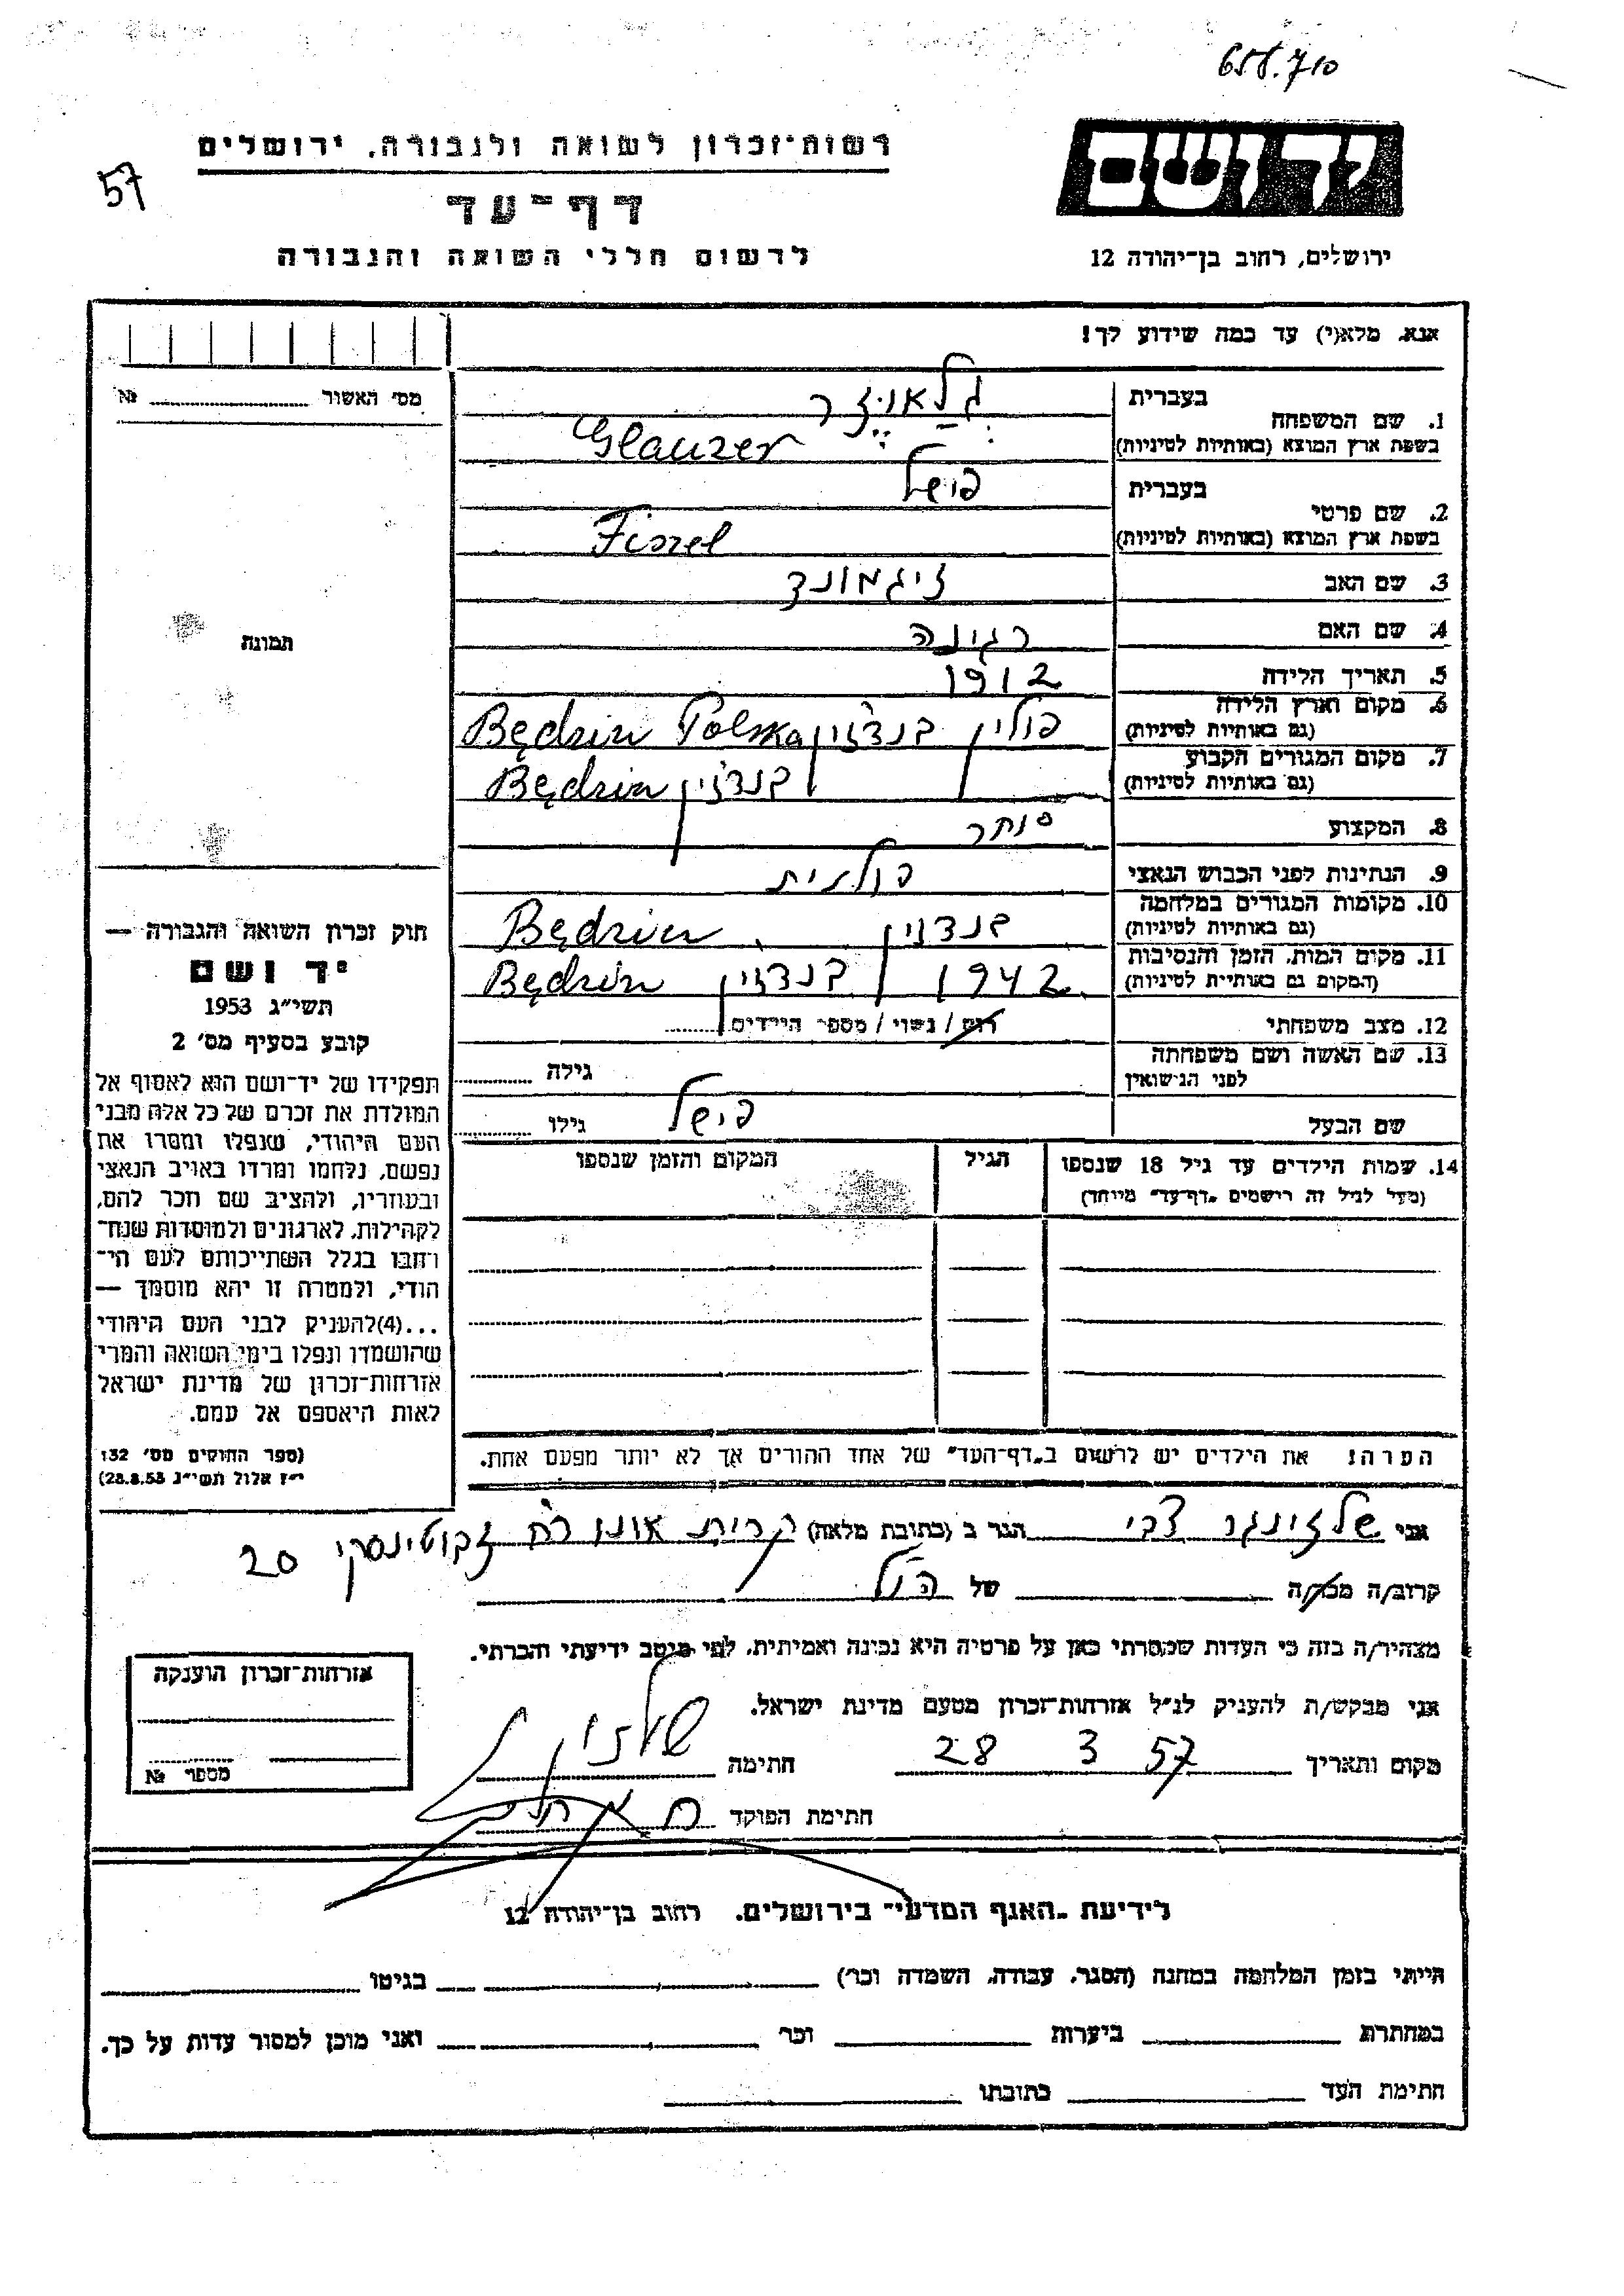 656.710
57
יד ושם
ירושלים, רחוב בן־יהודה 12
רשות־זכרון לשואה ולגבורה, ירושלים
דף־עד
לרשום חללי השואה והגבורה
אנא, מלא(י) עד כמה שידוע לך!
מס׳ האשור № 
1. שם המשפחה
בעברית גלאוזר
בשפת ארץ המוצא (באותיות לטיניות) Glauzer
2. שם פרטי
בעברית פישל
בשפת ארץ המוצא (באותיות לטיניות) Fiszel
3. שם האב זיגמונד
4. שם האם רגינה
5. תאריך הלידה 1912
6. מקום וארץ הלידה פולין בנדזין Będzin Polska
(גם באותיות לטיניות)
7. מקום המגורים הקבוע בנדזין Będzin
(גם באותיות לטיניות)
8. המקצוע סוחר
9. הנתינות לפני הכבוש הנאצי פולנית
10. מקומות המגורים במלחמה בנדזין Będzin
(גם באותיות לטיניות)
11. מקום המות, הזמן והנסיבות 1942 בנדזין Będzin
(המקום גם באותיית לטיניות)
12. מצב משפחתי רווק / נשוי / מספר הילדים
13. שם האשה ושם משפחתה גילה
לפני הנישואין
שם הבעל פישל גילו
14. שמות הילדים עד גיל 18 שנספו הגיל המקום והזמן שנספו
(מעל לגיל זה רישמים „דף־עד” מיוחד)
הערה: את הילדים יש לרשום ב„דף־העד” של אחד ההורים אך לא יותר מפעם אחת.
תמונה
חוק זכרון השואה והגבורה —
יד ושם
תשי״ג 1953
קובע בסעיף מס׳ 2
תפקידו של יד־ושם הוא לאסוף אל
המולדת את זכרם של כל אלה מבני
העם היהודי, שנפלו ומסרו את
נפשם, נלחמו ומרדו באויב הנאצי
ובעוזריו, ולהציב שם וזכר להם,
לקהילות, לארגונים ולמוסדות שנח־
רחבו בגלל השתייכותם לעם הי־
הודי, ולמטרה זו יהא מוסמך —
...(4)להעניק לבני העם היהודי
שהושמדו ונפלו בימי השואה והמרי
אזרחות־זכרון של מדינת ישראל
לאות היאספם אל עמם.
(ספר החוקים מס׳ 132
י״ז אלול תשי״ג 28.8.53)
אני שלזינגר צבי הגר ב (כתובת מלאה) קרית אונו רח זבוטינסקי 20
קרוב/ה מכר/ה של הנ״ל
מצהיר/ה בזה כי העדות שמסרתי כאן על פרטיה היא נכונה ואמיתית, לפי מיטב ידיעתי והכרתי.
אני מבקש/ת להעניק לנ״ל אזרחות־זכרון מטעם מדינת ישראל.
מקום ותאריך 28 3 57 חתימה
חתימת הפוקד
אזרחות־זכרון הוענקה
מספר №
לידיעת „האגף המדעי” בירושלים. רחוב בן־יהודה 12
הייתי בזמן המלחמה במחנה (הסגר, עבודה, השמדה וכר׳) בגיטו
במחתרת ביערות וכר׳ ואני מוכן למסור עדות על כך.
חתימת העד כתובתו